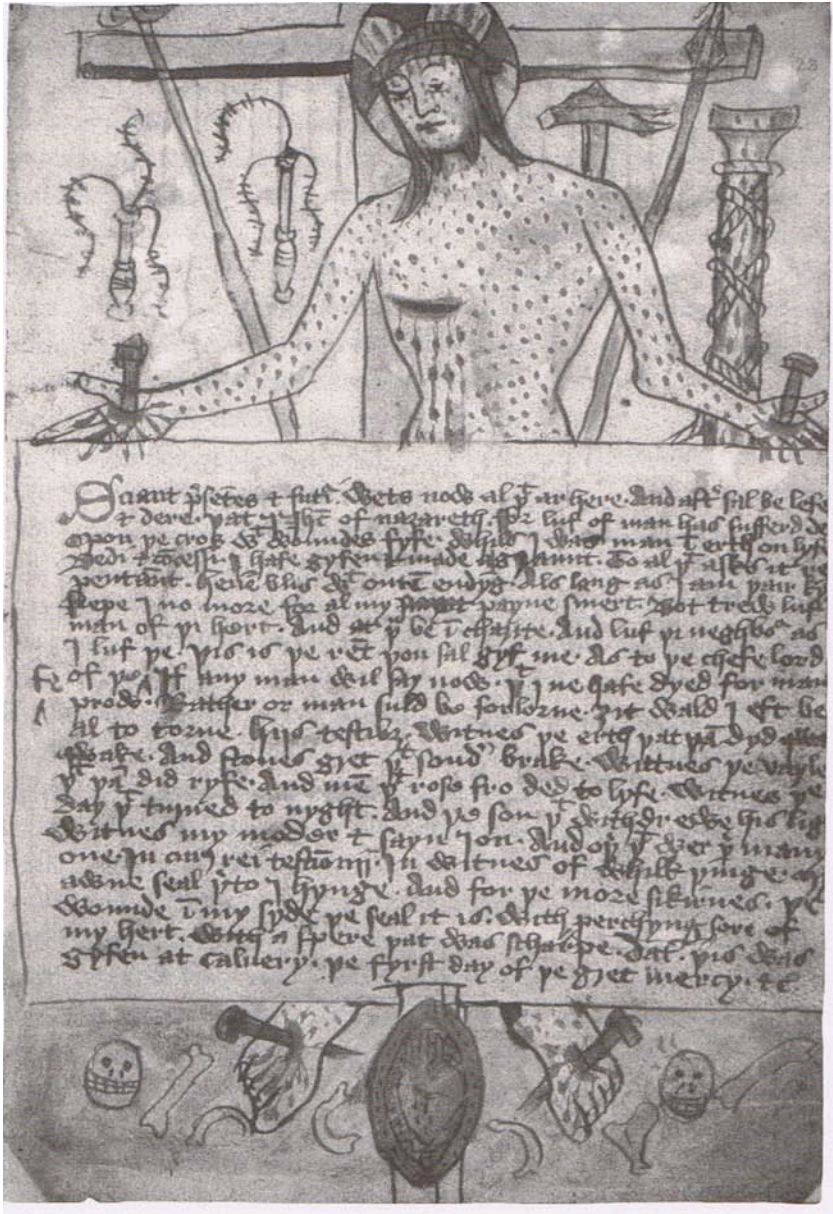 Sciant p̄sētes & futi᷑. Wets now al þͭ ar here. And aft᷑ sal be lefe
& dere. þat I Ih̄c of nazareth. For luf of man has sufferd de
Opon þe cros wͭ woundes fyfe. Whils I was man ī erth on lyfe
Dedi & c̄cessi. I hafe gyfen & made a g̾aunt. To al þͭ asks it re
pentānt. Heuē blis wͭ outē endyg. Als lang as I am þair ky
Kepe I no more for al my payne smert. Bot trew luf
man of þi hert. And at þͧ be ī charite. And luf þi neghboᷣ as
I luf þe. þis is þe rēt þou sal gyf me. As to þe chefe lord
of þe fe If any man wil say now. þͭ I ne hafe dyed for man
prow. Rather or man suld be forlorne. ȝit wald I eft be
al to torne. Hijs testibȝ. Witnes þe erth þat þā dyd
qwake. And stones gret þͭ sond᷑ brake. Wittnes þe vayle
þͭ þā did ryfe. And mē þͭ rose fro ded to lyfe. Witnes þe
day þͭ turned to nyght. And þe son þͭ withdrewe his lig
Witnes my moder & sayn Ion. And oþ᷑ þͭ wer þ᷑ many
one. In cuiȝ rei testīonij. In witnes of whilk þinge. my
awne seal þ᷑to I hynge. And for þe more sikirnes. þe
wounde ī my syde þe seal it is. With perchyng sore of
my hert. With a spere þat was scharpe. Dat᷑. þis was
gyfen at caluery. þe fyrst day of þe gret mercy. &c
23